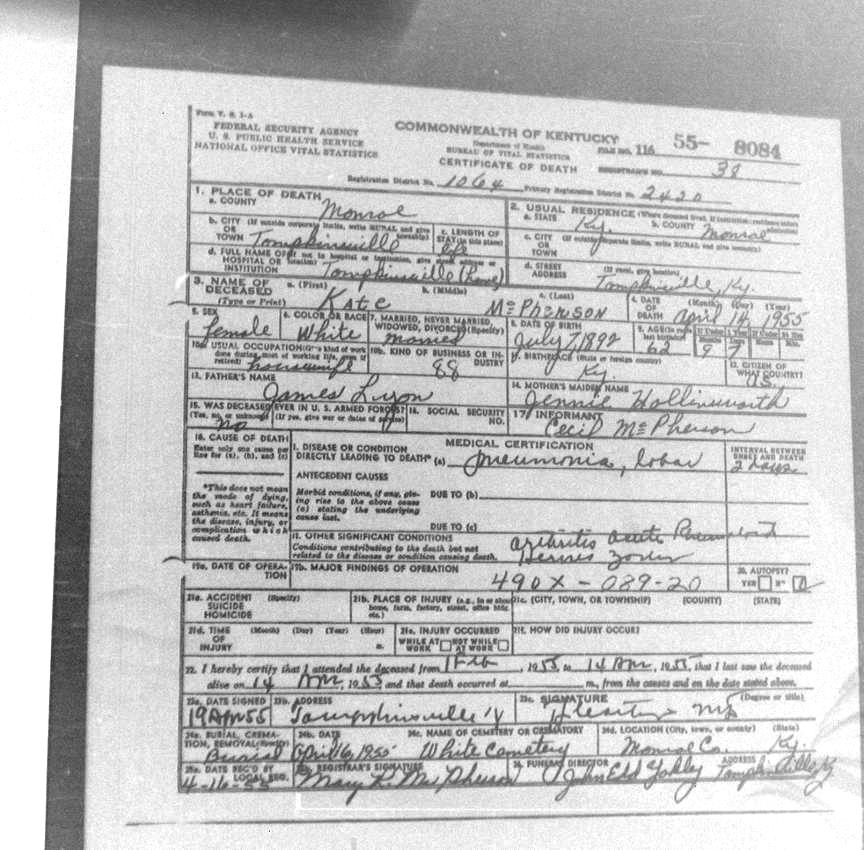 Form V. S. 1-A
FEDERAL SECURITY AGENCY
U. S. PUBLIC HEALTH SERVICE
NATIONAL OFFICE VITAL STATISTICS
COMMONWEALTH OF KENTUCKY
Department of Health
BUREAU OF VITAL STATISTICS
CERTIFICATE OF DEATH
FILE NO. 116 55- 8084
REGISTRAR'S NO. 38
Registration District No. 1064 Primary Registration District No. 2420
1. PLACE OF DEATH
a. COUNTY Monroe
2. USUAL RESIDENCE (Where deceased lived. If institution: residence before admission)
a. STATE Ky. b. COUNTY Monroe
b. CITY (If outside corporate limits, write RURAL and give township)
OR
TOWN Tompkinsville
c. LENGTH OF
STAY (in this place)
life
c. CITY (If outside corporate limits, write RURAL and give township)
OR
TOWN
d. FULL NAME OF (If not in hospital or institution, give street address or location)
HOSPITAL OR
INSTITUTION Tompkinsville
d. STREET (If rural, give location)
ADDRESS Tompkinsville, Ky.
3. NAME OF
DECEASED
(Type or Print)
a. (First) Kate
b. (Middle)
c. (Last) McPherson
4. DATE
OF
DEATH
(Month) (Day) (Year)
April 14, 1955
5. SEX
female
6. COLOR OR RACE
White
7. MARRIED, NEVER MARRIED,
WIDOWED, DIVORCED (Specify)
married
8. DATE OF BIRTH
July 7, 1892
9. AGE (In years last birthday)
62
If Under 1 Year
Months 9
Days 7
If Under 24 Hrs
Hours Min.
10a. USUAL OCCUPATION (Give kind of work done during most of working life, even if retired)
housewife
10b. KIND OF BUSINESS OR INDUSTRY
88
11. BIRTHPLACE (State or foreign country)
Ky.
12. CITIZEN OF
WHAT COUNTRY?
U.S.
13. FATHER'S NAME
James Lyon
14. MOTHER'S MAIDEN NAME
Jennie Hollinsworth
15. WAS DECEASED EVER IN U. S. ARMED FORCES?
(Yes, no, or unknown) (If yes, give war or dates of service)
no
16. SOCIAL SECURITY
NO.
17. INFORMANT
Cecil McPherson
18. CAUSE OF DEATH
Enter only one cause per line for (a), (b), and (c)
MEDICAL CERTIFICATION
I. DISEASE OR CONDITION
DIRECTLY LEADING TO DEATH* (a) pneumonia, lobar
INTERVAL BETWEEN
ONSET AND DEATH
2 days
*This does not mean
the mode of dying,
such as heart failure,
asthenia, etc. It means
the disease, injury, or
complication which
caused death.
ANTECEDENT CAUSES
Morbid conditions, if any, giving rise to the above cause (a) stating the underlying cause last.
DUE TO (b)
DUE TO (c)
II. OTHER SIGNIFICANT CONDITIONS
Conditions contributing to the death but not
related to the disease or condition causing death.
arthritis acute Rheumatoid
Herpes Zoster
19a. DATE OF OPERATION
19b. MAJOR FINDINGS OF OPERATION
490X-089-20
20. AUTOPSY?
YES NO
21a. ACCIDENT (Specify)
SUICIDE
HOMICIDE
21b. PLACE OF INJURY (e.g., in or about home, farm, factory, street, office bldg. etc.)
21c. (CITY, TOWN, OR TOWNSHIP) (COUNTY) (STATE)
21d. TIME (Month) (Day) (Year) (Hour)
OF
INJURY m.
21e. INJURY OCCURRED
WHILE AT WORK NOT WHILE AT WORK
21f. HOW DID INJURY OCCUR?
22. I hereby certify that I attended the deceased from 1 Feb, 1955 to 14 Apr, 1955, that I last saw the deceased
alive on 14 Apr, 1955 and that death occurred at m., from the causes and on the date stated above.
23a. DATE SIGNED
19 Apr 55
23b. ADDRESS
Tompkinsville Ky
23c. SIGNATURE (Degree or title)
MD
24a. BURIAL, CREMATION, REMOVAL (Specify)
Burial
24b. DATE
April 16, 1955
24c. NAME OF CEMETERY OR CREMATORY
White Cemetery
24d. LOCATION (City, town, or county) (State)
Monroe Co. Ky.
25a. DATE REC'D BY
LOCAL REG.
4-16-55
25b. REGISTRAR'S SIGNATURE
Mary L. McPherson
26. FUNERAL DIRECTOR
John Edd Yokley
ADDRESS
Tompkinsville, Ky